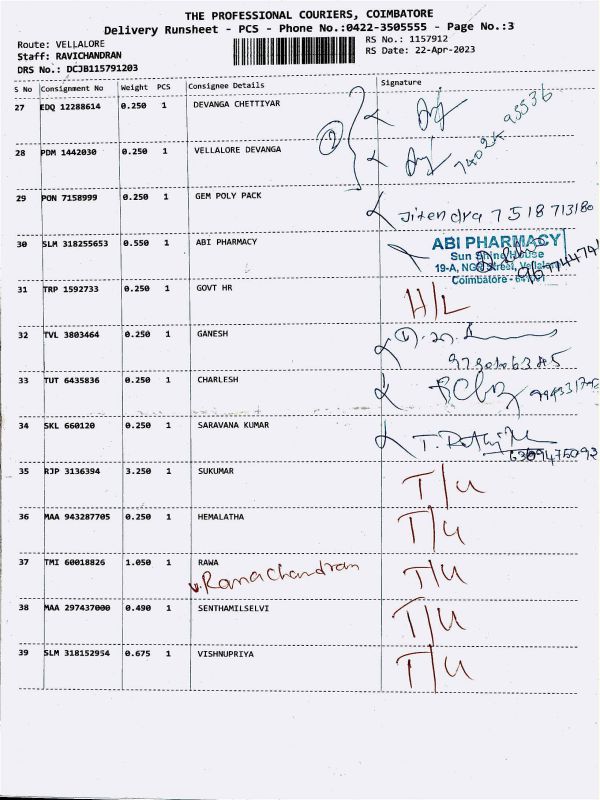 THE PROFESSIONAL COURIERS, COIMBATORE
Delivery Runsheet - PCS - Phone No.:0422-3505555 - Page No.:3
Route: VELLALORE
RS No.: 1157912
Staff: RAVICHANDRAN
RS Date: 22-Apr-2023
DRS No.: DCJB115791203
S No Consignment No Weight PCS Consignee Details Signature
27 EDQ 12288614 0.250 1 DEVANGA CHETTIYAR
28 PDM 1442030 0.250 1 VELLALORE DEVANGA
29 PON 7158999 0.250 1 GEM POLY PACK Jitendra 7518713180
30 SLM 318255653 0.550 1 ABI PHARMACY
ABI PHARMACY
Sun Shine House
19-A, Street,
Coimbatore -
31 TRP 1592733 0.250 1 GOVT HR H/L
32 TVL 3803464 0.250 1 GANESH
33 TUT 6435836 0.250 1 CHARLESH
34 SKL 660120 0.250 1 SARAVANA KUMAR 6369475093
35 RJP 3136394 3.250 1 SUKUMAR T/U
36 MAA 943287705 0.250 1 HEMALATHA T/U
37 TMI 60018826 1.050 1 RAWA T/U
v.Ramachandran
38 MAA 297437000 0.490 1 SENTHAMILSELVI T/U
39 SLM 318152954 0.675 1 VISHNUPRIYA T/U